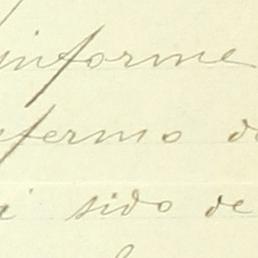 informe
nfermo de
a sido de